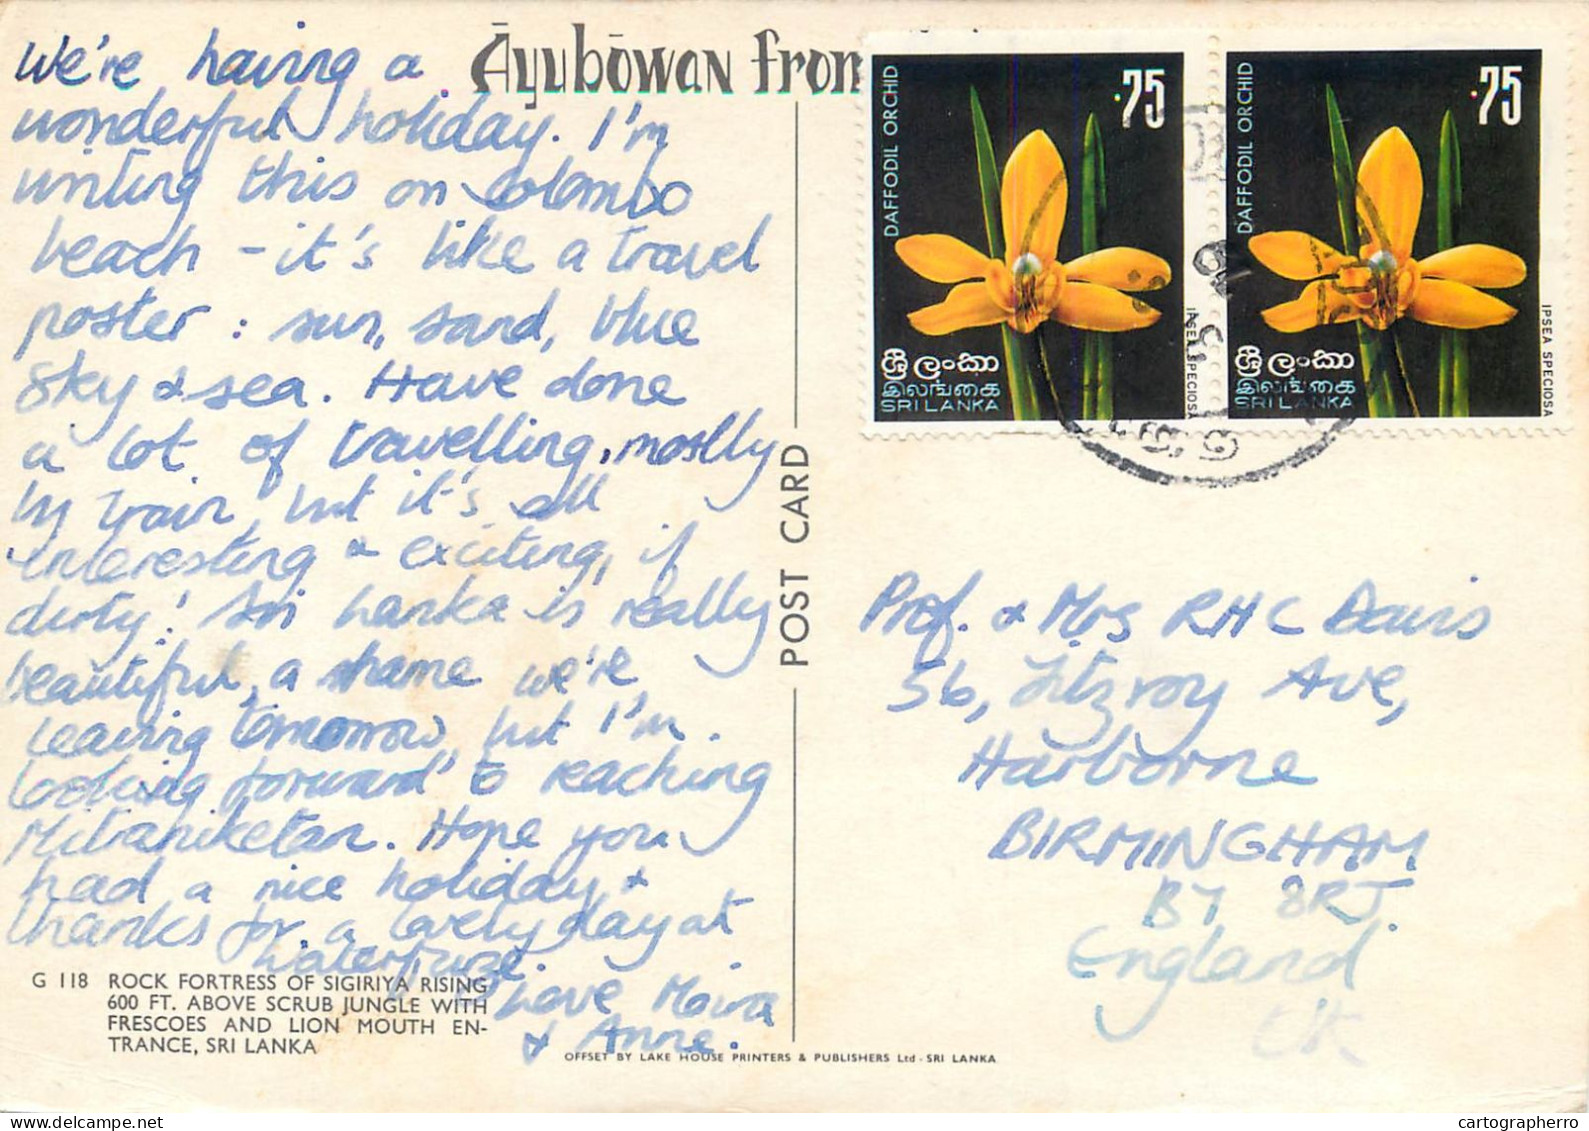 Āyubōwan from
We're having a
wonderful holiday. I'm
writing this on Colombo
beach - it's like a travel
poster : sun, sand, blue
sky & sea. Have done
a lot of travelling, mostly
by train, but it's all
interesting & exciting, if
dirty! Sri Lanka is really
beautiful, a shame we're
leaving tomorrow, but I'm
looking forward to reaching
Mitraniketan. Hope you
had a nice holiday, &
thanks for a lovely day at
Love Moira
& Anne.
G 118 ROCK FORTRESS OF SIGIRIYA RISING
600 FT. ABOVE SCRUB JUNGLE WITH
FRESCOES AND LION MOUTH EN-
TRANCE, SRI LANKA
OFFSET BY LAKE HOUSE PRINTERS & PUBLISHERS Ltd - SRI LANKA
POST CARD
DAFFODIL ORCHID
.75
IPSEA SPECIOSA
ශ්‍රී ලංකා
இலங்கை
SRI LANKA
DAFFODIL ORCHID
.75
IPSEA SPECIOSA
ශ්‍රී ලංකා
இலங்கை
SRI LANKA
Prof. & Mrs RHC Davis
56, Fitzroy Ave,
Harborne
BIRMINGHAM
B17 8RJ
England
UK
delcampe.net
cartographerro